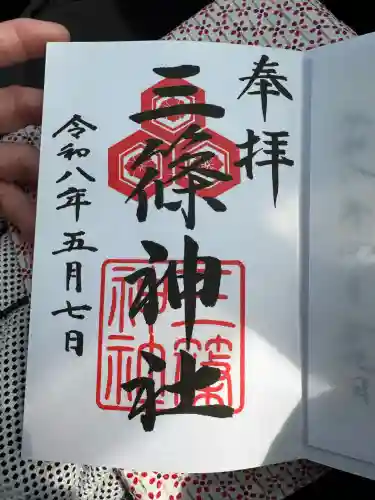 奉拝
三篠神社
三篠神社
令和八年五月七日